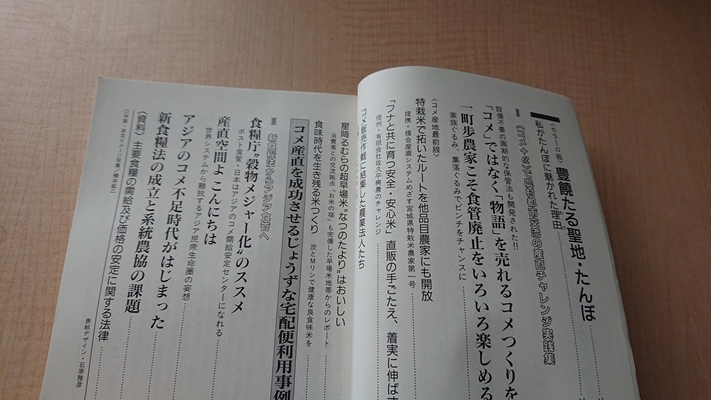 〈カラー口絵〉豊饒たる聖地・たんぼ
私がたんぼに魅かれた理由
設備不要の画期的な保管法も開発された!!
「コメ」ではなく、“物語”を売れるコメつくりを
一町歩農家こそ食管廃止をいろいろ楽しめる
家族ぐるみ、集落ぐるみでピンチをチャンスに
〈コメ産地最前線〉
特栽米で拓いたルートを他品目農家にも開放
提携・複合産直システムめざす宮城県特栽米農家第一号
「フナと共に育つ安全・安心米」直販の手ごたえ、着実に伸ばす
コメ販売作戦に結集した農業法人たち
星降るむらの超早場米“なつのたより”はおいしい
消費者との交流拠点「お米の宿」も完備した早場米地帯からのレポート
食味時代を生き残る米つくり
炭とMリンで健康な良食味米を
コメ産直を成功させるじょうずな宅配便利用事例
食糧庁“穀物メジャー化”のススメ
ポスト食管・日本はアジアのコメ需給安定センターになれる
産直空間よ こんにちは
世界システムから離脱するアジア民衆生命圏の妄想
アジアのコメ不足時代がはじまった
新食糧法の成立と系統農協の課題
〈資料〉主要食糧の需給及び価格の安定に関する法律
表紙デザイン・石原雅彦